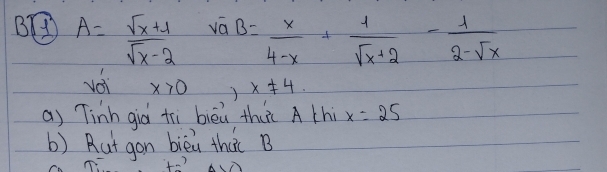 BT1 A = (√x+1)/(√x-2) và B = x/(4-x) + 1/(√x+2) - 1/(2-√x)
với x>0, x≠4.
a) Tính giá trị biểu thức A khi x = 25
b) Rút gọn biểu thức B